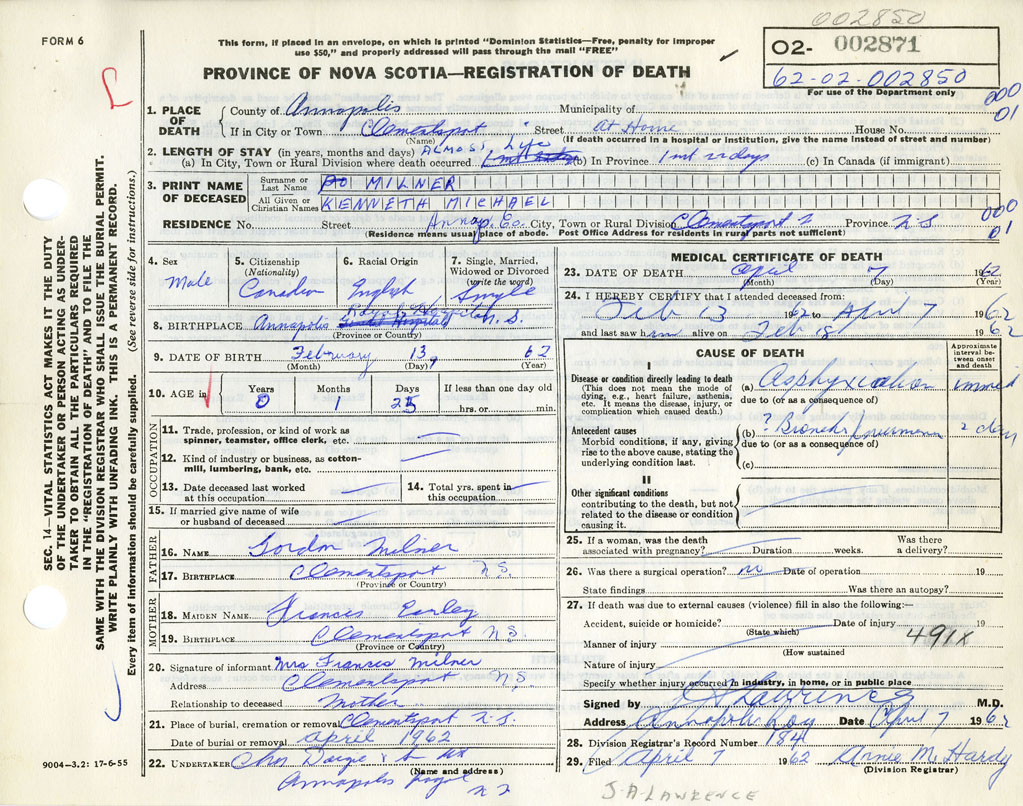 002850
FORM 6
This form, if placed in an envelope, on which is printed "Dominion Statistics—Free, penalty for improper
use $50," and properly addressed will pass through the mail "FREE"
O2- 002871
62-02-002850
For use of the Department only
PROVINCE OF NOVA SCOTIA—REGISTRATION OF DEATH
000
01
1. PLACE OF DEATH
County of Annapolis Municipality of
If in City or Town Clementsport Street At Home House No.
(Name) (If death occurred in a hospital or Institution, give the name instead of street and number)
2. LENGTH OF STAY (in years, months and days) ALMOST Life
(a) In City, Town or Rural Division where death occurred (b) In Province 1 mt days (c) In Canada (if immigrant)
3. PRINT NAME OF DECEASED
Surname or Last Name MILNER
All Given or Christian Names KENNETH MICHAEL
000
01
RESIDENCE No. Street Annap. Co. City, Town or Rural Division Clementsport Province N.S
(Residence means usual place of abode. Post Office Address for residents in rural parts not sufficient)
4. Sex
Male
5. Citizenship
(Nationality)
Canadian
6. Racial Origin
English
7. Single, Married,
Widowed or Divorced
(write the word)
Single
8. BIRTHPLACE Annapolis Royal Hospital N.S.
(Province or Country)
9. DATE OF BIRTH February 13, 62
(Month) (Day) (Year)
10. AGE in
Years Months Days If less than one day old
0 1 25 hrs. or min.
OCCUPATION
11. Trade, profession, or kind of work as
spinner, teamster, office clerk, etc.
12. Kind of industry or business, as cotton-
mill, lumbering, bank, etc.
13. Date deceased last worked
at this occupation
14. Total yrs. spent in
this occupation
15. If married give name of wife
or husband of deceased
FATHER
16. NAME Gordon Milner
17. BIRTHPLACE Clementsport N.S.
(Province or Country)
MOTHER
18. MAIDEN NAME Frances Earley
19. BIRTHPLACE Clementsport N.S.
(Province or Country)
20. Signature of informant Mrs Frances Milner
Address Clementsport N.S
Relationship to deceased Mother
21. Place of burial, cremation or removal Clementsport N.S.
Date of burial or removal April 1962
22. UNDERTAKER Chas & Son
(Name and address)
Annapolis Royal
N S
MEDICAL CERTIFICATE OF DEATH
23. DATE OF DEATH April 7 1962
(Month) (Day) (Year)
24. I HEREBY CERTIFY that I attended deceased from:
Feb 13 1962 to April 7 1962
and last saw him alive on Feb 18 1962
CAUSE OF DEATH
Approximate interval between onset and death
I
Disease or condition directly leading to death
(This does not mean the mode of
dying, e.g., heart failure, asthenia,
etc. It means the disease, injury, or
complication which caused death.)
(a) Asphyxiation immed
due to (or as a consequence of)
Antecedent causes
Morbid conditions, if any, giving
rise to the above cause, stating the
underlying condition last.
(b) ? Broncho pneumonia 2 days
due to (or as a consequence of)
(c)
II
Other significant conditions
contributing to the death, but not
related to the disease or condition
causing it.
25. If a woman, was the death Was there
associated with pregnancy? Duration weeks. a delivery?
26. Was there a surgical operation? no Date of operation 19
State findings Was there an autopsy?
27. If death was due to external causes (violence) fill in also the following:—
Accident, suicide or homicide? Date of injury 19
(State which)
491X
Manner of injury
(How sustained
Nature of injury
Specify whether injury occurred in industry, in home, or in public place
Signed by Lawrence M.D.
Address Annapolis Roy Date April 7 1962
28. Division Registrar's Record Number 184
29. Filed April 7 1962 Annie M. Hardy
(Division Registrar)
J-A-LAWRENCE
SEC. 14—VITAL STATISTICS ACT MAKES IT THE DUTY
OF THE UNDERTAKER OR PERSON ACTING AS UNDER-
TAKER TO OBTAIN ALL THE PARTICULARS REQUIRED
IN THE "REGISTRATION OF DEATH" AND TO FILE THE
SAME WITH THE DIVISION REGISTRAR WHO SHALL ISSUE THE BURIAL PERMIT.
WRITE PLAINLY WITH UNFADING INK. THIS IS A PERMANENT RECORD.
Every item of information should be carefully supplied. (See reverse side for instructions.)
9004—3.2: 17-6-55